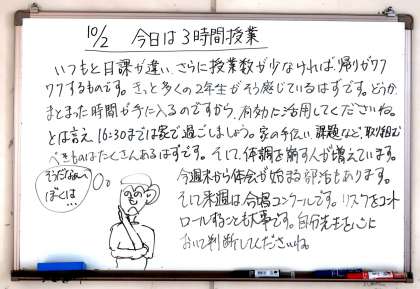 10/2 今日は3時間授業
いつもと日課が違い、さらに授業数が少なければ、帰りがワク
ワクするものです。きっと多くの2年生がそう感じているはずです。どうか、
まとまった時間が手に入るのですから、有効に活用してくださいね。
とは言え、16:30までは家で過ごしましょう。家の手伝い、課題など、取り組む
べきものはたくさんあるはずです。そして、体調を崩す人が増えています。
今週末から体会が始まる部活もあります。
そして来週は合唱コンクールです。リスクをコント
ロールすることも大事です。自分
おいて判断してくださいね
そうだなぁ〜
ぼくは…